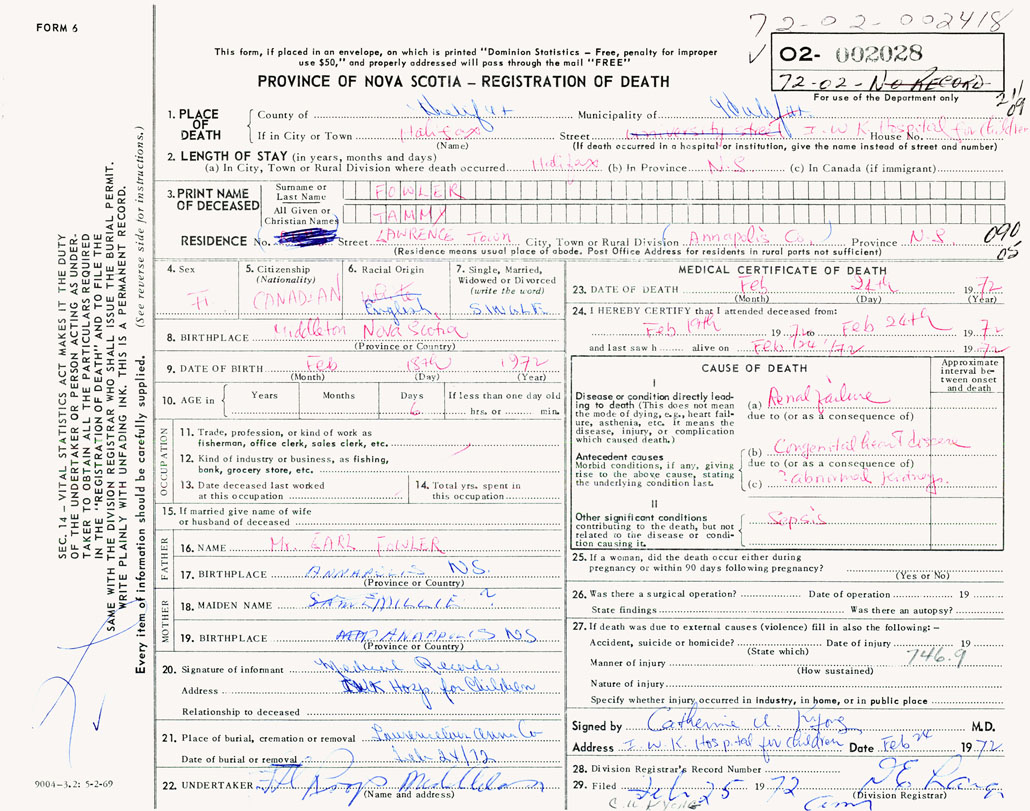 FORM 6
72-02-002418
This form, if placed in an envelope, on which is printed "Dominion Statistics – Free, penalty for improper
use $50," and properly addressed will pass through the mail "FREE"
O2- 002028
72-02- NO RECORD
For use of the Department only
PROVINCE OF NOVA SCOTIA – REGISTRATION OF DEATH
1. PLACE OF DEATH
County of Halifax Municipality of Halifax
If in City or Town Halifax Street University Street I.W.K Hospital for Children House No.
(Name) (If death occurred in a hospital or institution, give the name instead of street and number)
2. LENGTH OF STAY (in years, months and days)
(a) In City, Town or Rural Division where death occurred Halifax (b) In Province N.S (c) In Canada (if immigrant)
3. PRINT NAME OF DECEASED
Surname or Last Name FOWLER
All Given or Christian Names TAMMY
RESIDENCE No. Street LAWRENCE TOWN City, Town or Rural Division Annapolis Co. Province N.S 090
05
(Residence means usual place of abode. Post Office Address for residents in rural parts not sufficient)
4. Sex
F.
5. Citizenship
(Nationality)
CANADIAN
6. Racial Origin
English
7. Single, Married,
Widowed or Divorced
(write the word)
SINGLE
8. BIRTHPLACE Middleton Nova Scotia
(Province or Country)
9. DATE OF BIRTH Feb 18th 1972
(Month) (Day) (Year)
10. AGE in Years Months Days If less than one day old
6 hrs. or min.
OCCUPATION
11. Trade, profession, or kind of work as
fisherman, office clerk, sales clerk, etc.
12. Kind of industry or business, as fishing,
bank, grocery store, etc.
13. Date deceased last worked
at this occupation
14. Total yrs. spent in
this occupation
15. If married give name of wife
or husband of deceased
FATHER
16. NAME Mr. EARL FOWLER
17. BIRTHPLACE ANNAPOLIS NS.
(Province or Country)
MOTHER
18. MAIDEN NAME MILLIE ?
19. BIRTHPLACE ANNAPOLIS NS
(Province or Country)
20. Signature of informant Medical Records
Address IWK Hosp for Children
Relationship to deceased
21. Place of burial, cremation or removal Lawrencetown Anna Co
Date of burial or removal Feb 24/72
22. UNDERTAKER Roop
(Name and address)
MEDICAL CERTIFICATE OF DEATH
23. DATE OF DEATH Feb 24th 1972
(Month) (Day) (Year)
24. I HEREBY CERTIFY that I attended deceased from:
Feb 19th 1972 to Feb 24th 1972
and last saw h alive on Feb 24/72 1972
CAUSE OF DEATH
Approximate interval between onset and death
I
Disease or condition directly leading
to death (This does not mean
the mode of dying, e.g., heart failure,
asthenia, etc. It means the
disease, injury, or complication
which caused death.)
(a) Renal failure
due to (or as a consequence of)
Antecedent causes
Morbid conditions, if any, giving
rise to the above cause, stating
the underlying condition last.
(b) Congenital heart disease
due to (or as a consequence of)
(c) ? abnormal kidneys.
II
Other significant conditions
contributing to the death, but not
related to the disease or condition
causing it.
Sepsis
25. If a woman, did the death occur either during
pregnancy or within 90 days following pregnancy?
(Yes or No)
26. Was there a surgical operation? Date of operation 19
State findings Was there an autopsy?
27. If death was due to external causes (violence) fill in also the following: –
Accident, suicide or homicide? Date of injury 19
(State which)
746.9
Manner of injury
(How sustained)
Nature of injury
Specify whether injury occurred in industry, in home, or in public place
Signed by Catherine M.D.
Address I.W.K. Hospital for children Date Feb 24 1972
28. Division Registrar's Record Number
29. Filed Feb 25 1972
(Division Registrar)
SEC. 14 – VITAL STATISTICS ACT MAKES IT THE DUTY
OF THE UNDERTAKER OR PERSON ACTING AS UNDER-
TAKER TO OBTAIN ALL THE PARTICULARS REQUIRED
IN THE "REGISTRATION OF DEATH" AND TO FILE THE
SAME WITH THE DIVISION REGISTRAR WHO SHALL ISSUE THE BURIAL PERMIT.
WRITE PLAINLY WITH UNFADING INK. THIS IS A PERMANENT RECORD.
Every item of information should be carefully supplied. (See reverse side for instructions.)
9004-3.2: 5-2-69